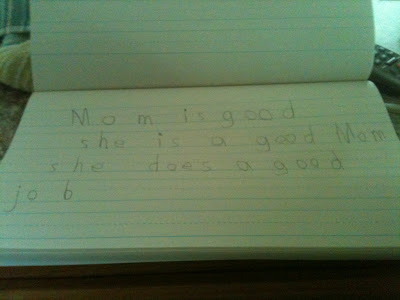 Mom is good
she is a good Mom
she does a good
job